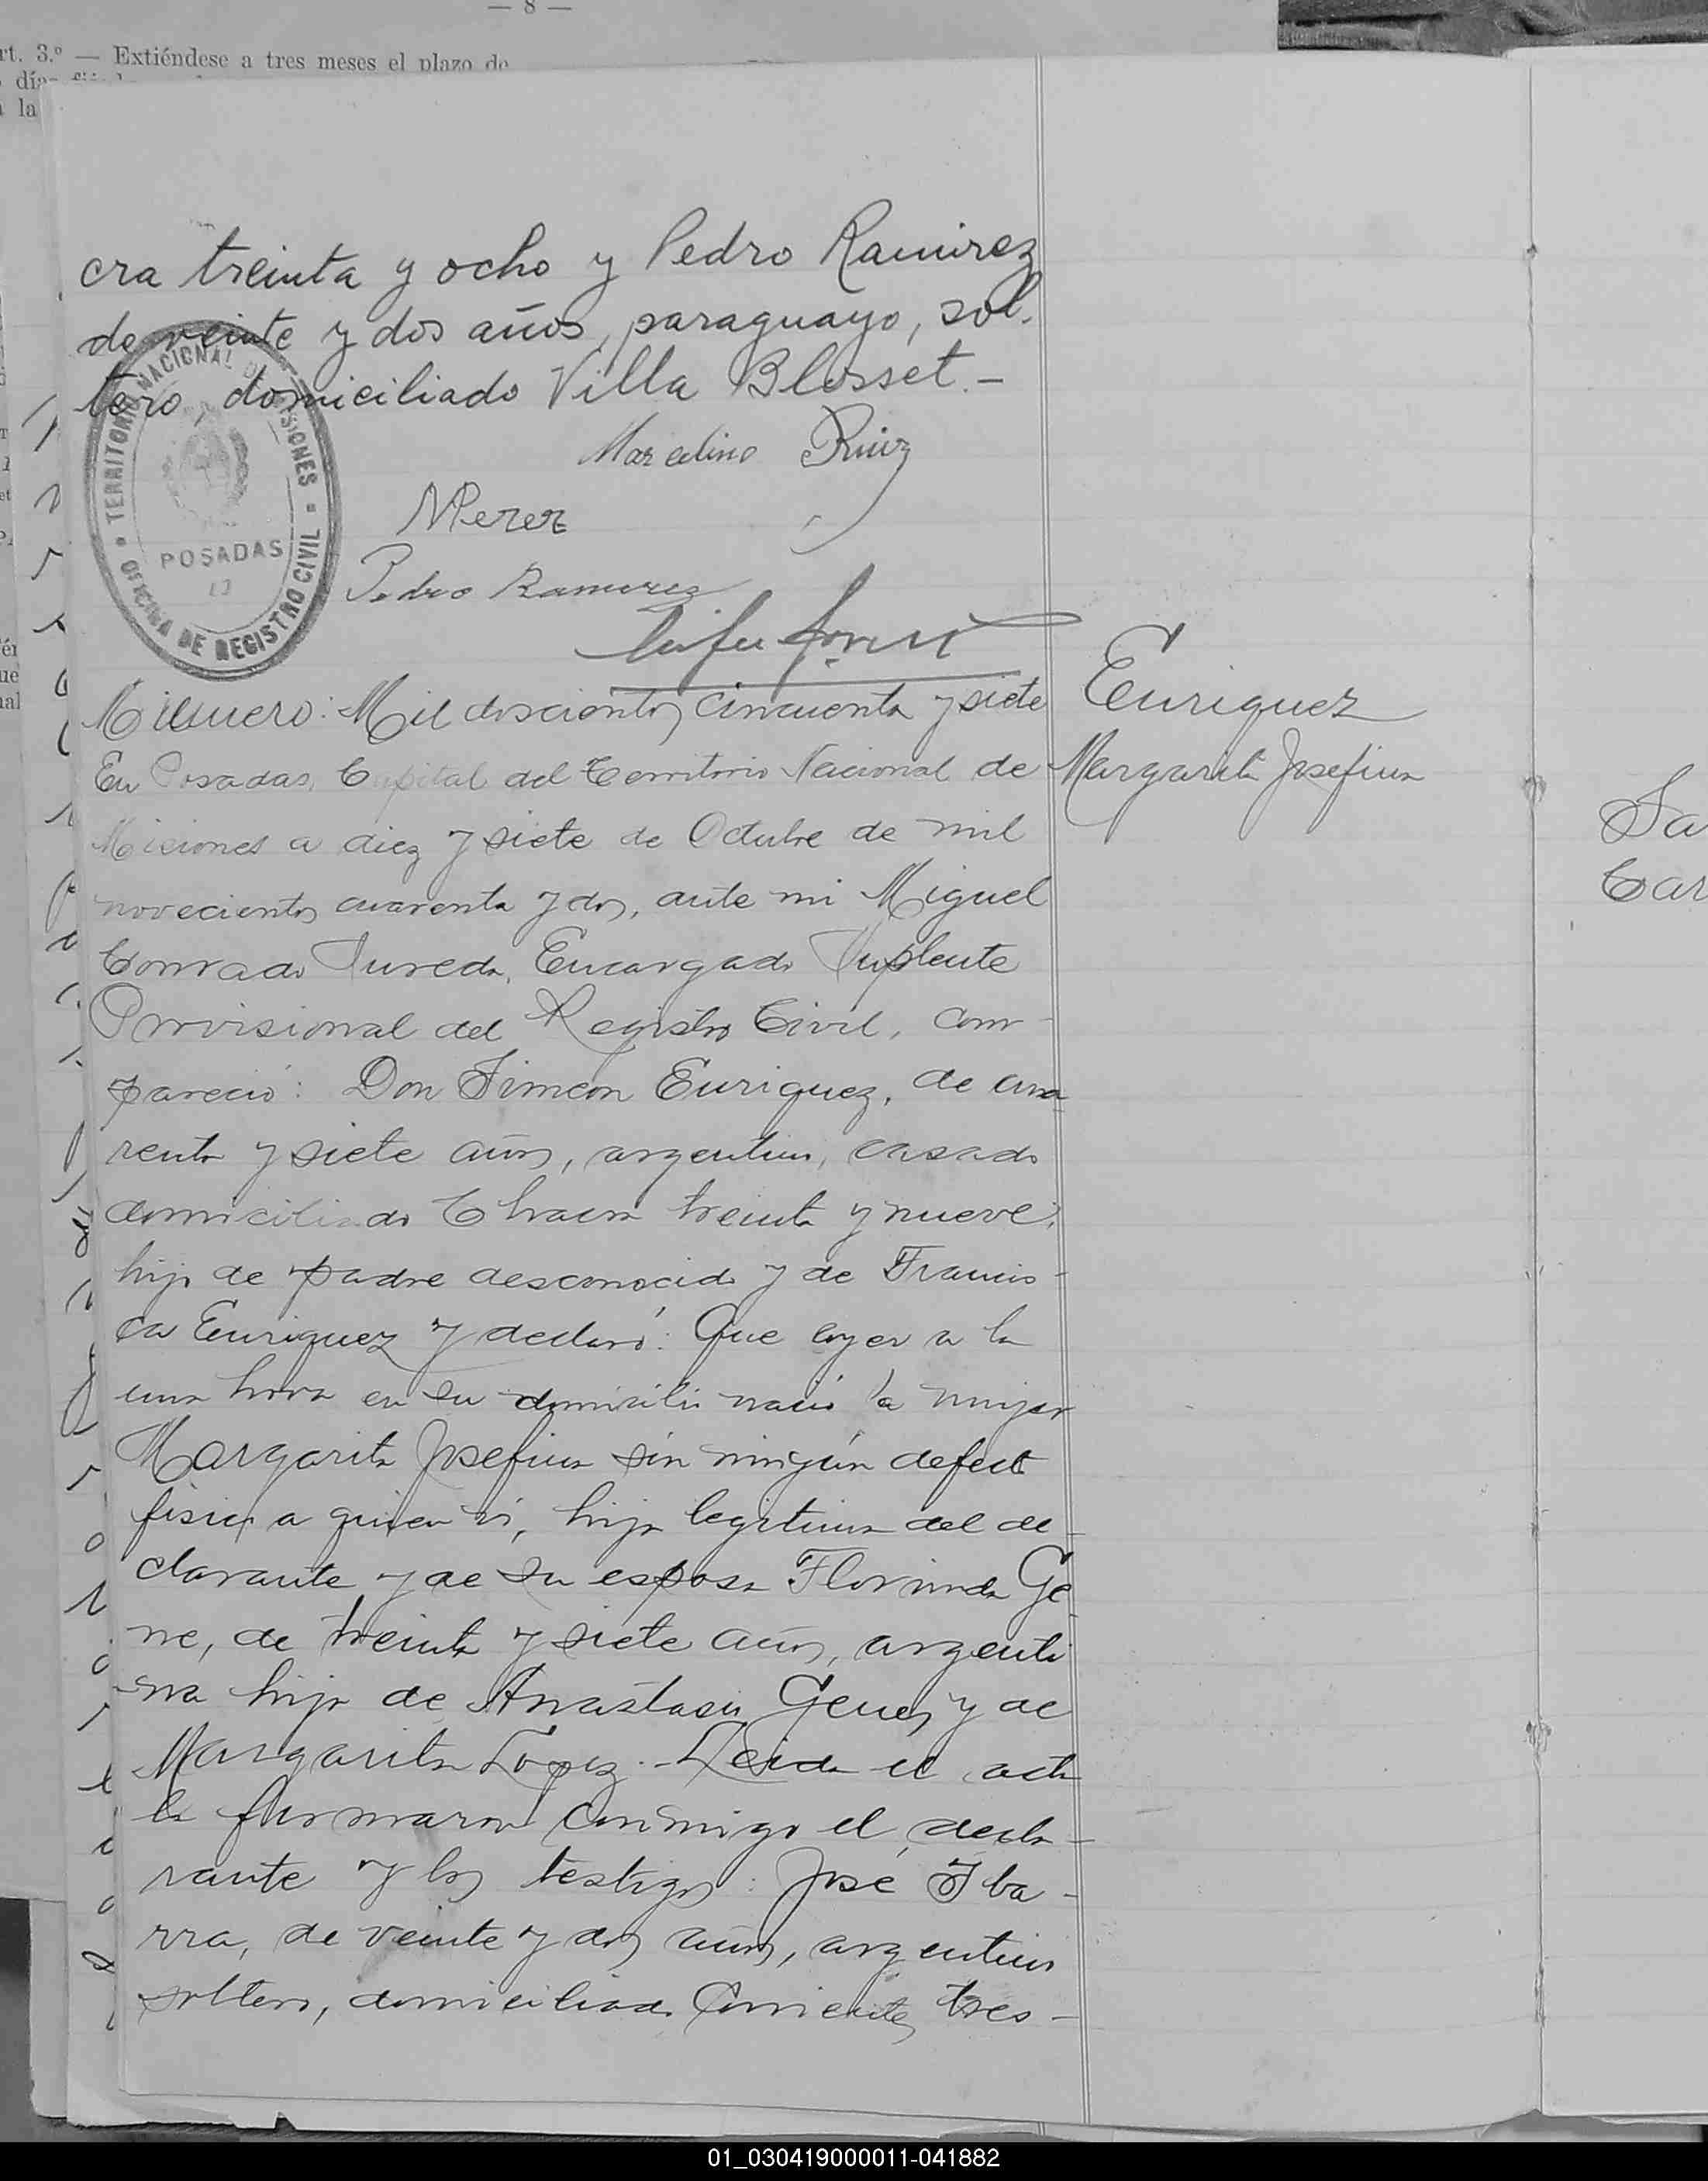 — 8 —
rt. 3.º — Extiéndese a tres meses el plazo de
la
cra treinta y ocho y Pedro Ramirez
de veinte y dos años, paraguayo, sol.
tero domiciliado Villa Blosset.—
Marcelino Ruiz
Pedro Ramirez
TERRITORIO NACIONAL DE MISIONES
POSADAS
OFICINA DE REGISTRO CIVIL
Número: Mil doscientos cincuenta y siete
Enriquez
Margarita Josefina
En Posadas, Capital del Territorio Nacional de
Misiones a diez y siete de Octubre de mil
novecientos cuarenta y dos, ante mi Miguel
Conrado Encargado Suplente
Provisional del Registro Civil, com
pareció: Don Simeon Enriquez, de cua
renta y siete años, argentino, casado
domiciliado Chacra treinta y nueve,
hijo de padre desconocido y de Francis-
ca Enriquez y declaró: Que ayer a la
una hora en su domicilio nació la mujer
Margarita Josefina sin ningún defecto
físico a quien ví, hija legitima del de-
clarante y de su esposa Florinda Ge
ne, de treinta y siete años, argenti
na hija de Anastasio Genes y de
Margarita Lopez.- Leida el acta
la firmaron conmigo el decla-
rante y los testigos: José Iba-
rra, de veinte y dos años, argentino
soltero, domiciliado Corrientes tres-
Sa
Car
01_030419000011-041882